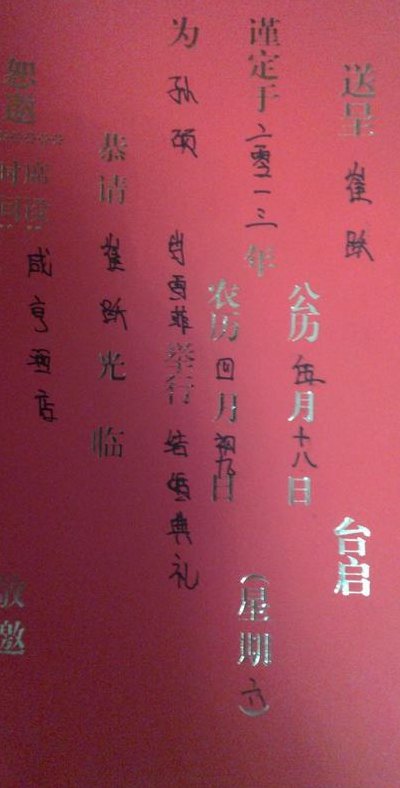 送呈 崔跃 台启
谨定于二零一三年
公历伍月十八日
农历四月初九日
（星期六）
为 孙硕 雨菲 举行 结婚典礼
恭请 崔跃 光临
恕邀 敬邀
席设 咸亨酒店
时间